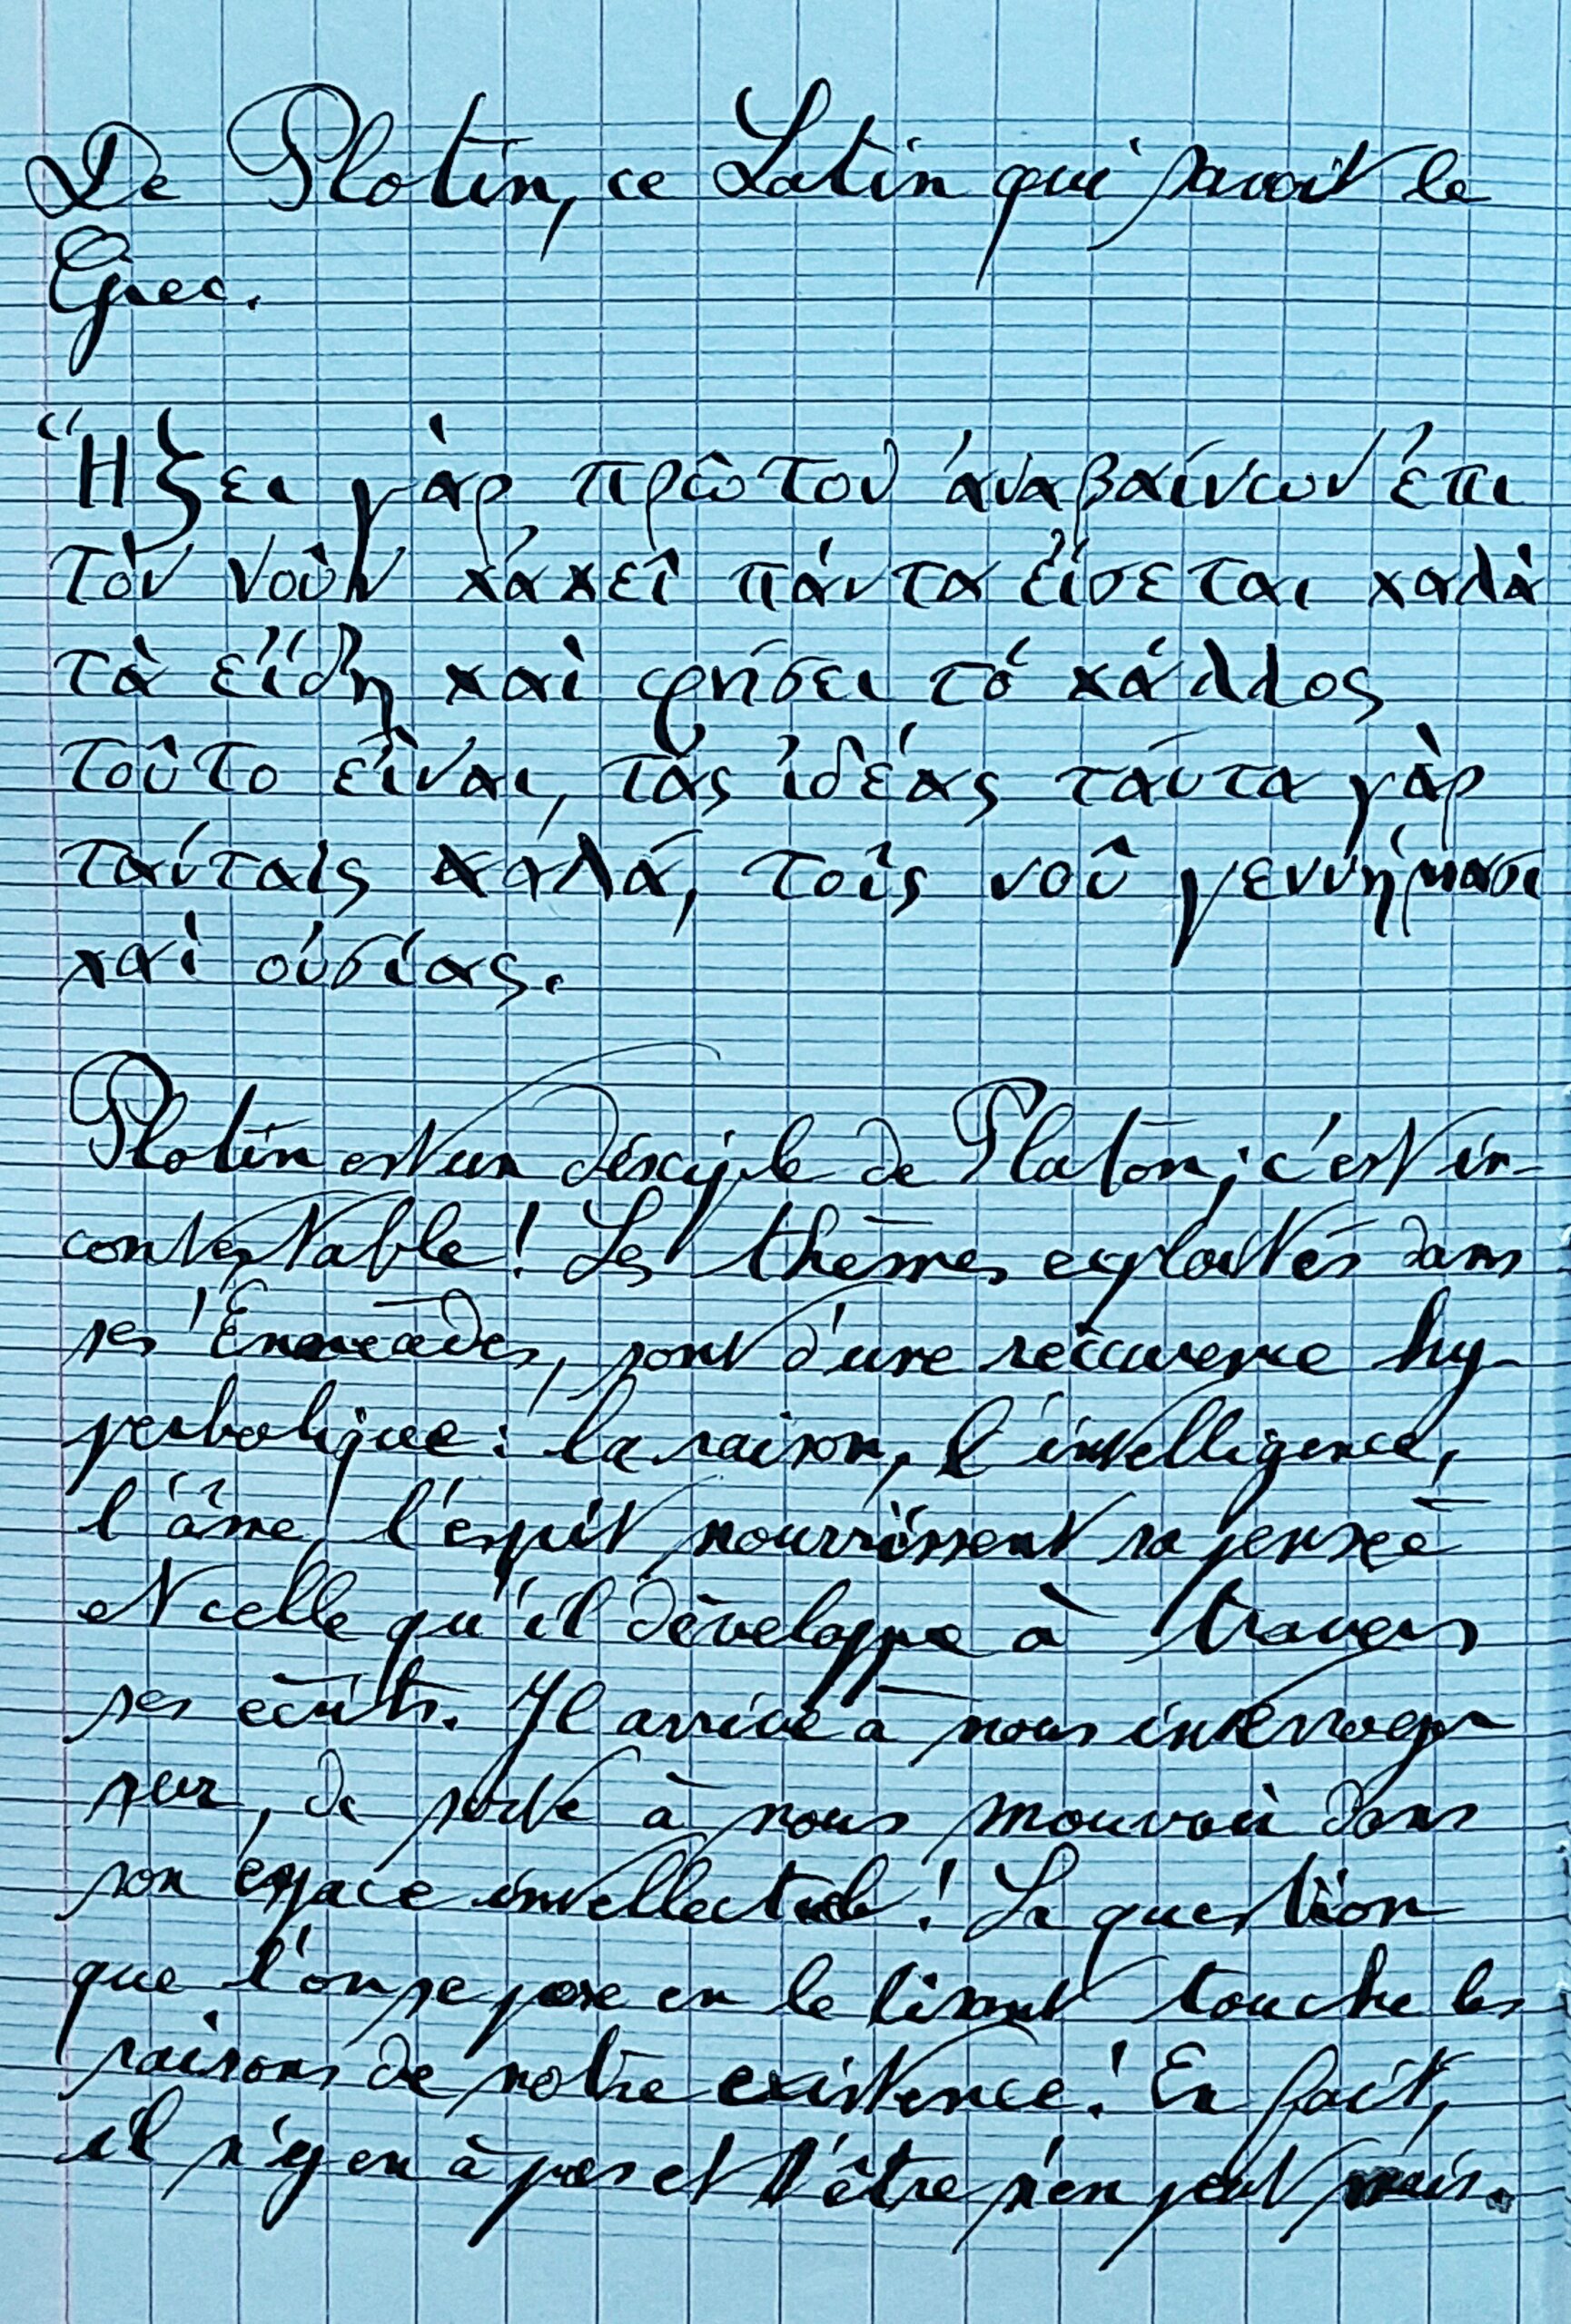 De Plotin, ce Latin qui savait le
Grec.
“Ἥξει γὰρ πρῶτον ἀναβαίνων ἐπι
τὸν νοῦν κἀκεῖ πάντα εἴσεται καλὰ
τὰ εἴδη καὶ φήσει τό κάλλος
τοῦτο εἶναι, τὰς ἰδέας τάυτα γὰρ
ταύταις καλά, τοῖς νοῦ γεννήμασι
καὶ οὐσίας.
Plotin est un disciple de Platon ; c'est in-
contestable ! Les thèmes exploités dans
ses Ennéades, sont d'une récurence hy-
perbolique : la raison, l'intelligence,
l'âme, l'esprit nourrissent sa pensée
et celle qu'il développe à travers
ses écrits. Il arrive à nous interroger
sur, de sorte à nous mouvoir dans
son espace intellectuel ! La question
que l'on se pose en le lisant touche les
raisons de notre existence ! En fait,
il n'y en à pas et l'être n'en peut mais.